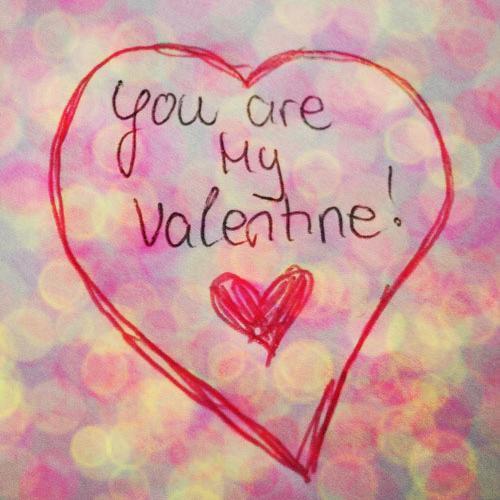 You are
My
Valentine!